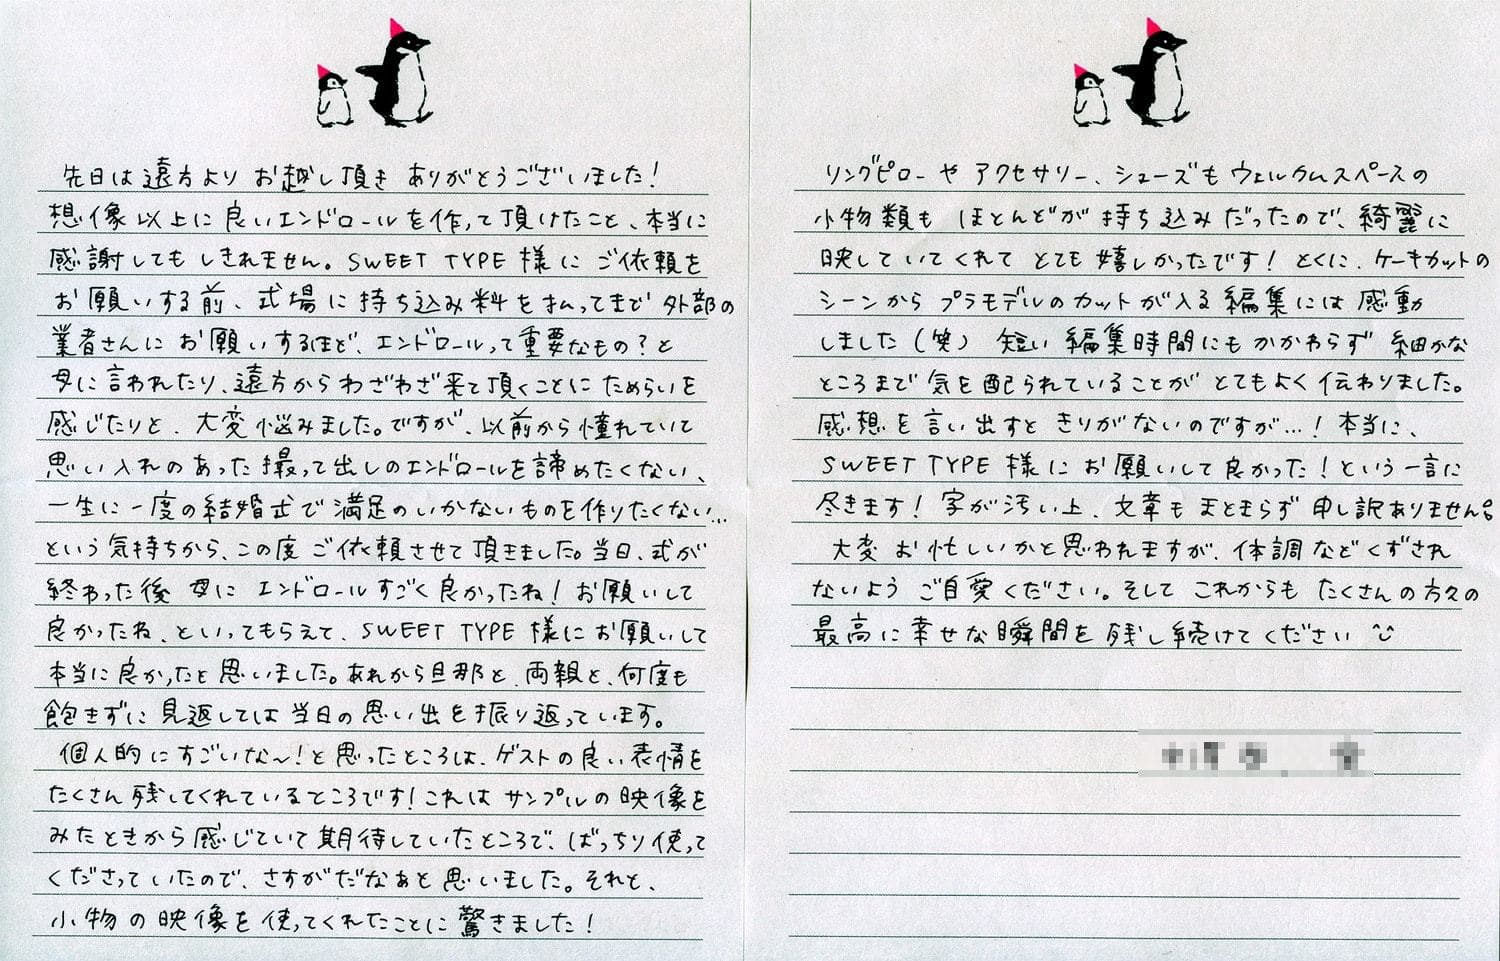 先日は遠方より お越し頂き ありがとうございました!
想像以上に良いエンドロールを作って頂けたこと、本当に
感謝してもしきれません。SWEET TYPE 様に ご依頼を
お願いする前、式場に持ち込み料を払ってまで 外部の
業者さんに お願いするほど、エンドロールって重要なもの?と
母に言われたり、遠方からわざわざ来て頂くことに ためらいを
感じたりと、大変悩みました。ですが、以前から憧れていて
思い入れのあった撮って出しのエンドロールを諦めたくない、
一生に一度の結婚式で満足のいかないものを作りたくない…
という気持ちから、この度 ご依頼させて頂きました。当日、式が
終わった後 母に エンドロールすごく良かったね! お願いして
良かったね、といってもらえて、SWEET TYPE 様にお願いして
本当に良かったと思いました。あれから旦那と、両親と、何度も
飽きずに見返しては当日の思い出を振り返っています。
個人的にすごいな〜!と思ったところは、ゲストの良い表情を
たくさん残してくれているところです! これは サンプルの映像を
みたときから感じていて期待していたところで、ばっちり使って
くださっていたので、さすがだなあと思いました。それと、
小物の映像を使ってくれたことに驚きました!
リングピローや アクセサリー、シューズもウェルカムスペースの
小物類も ほとんどが持ち込みだったので、綺麗に
映していてくれて とても嬉しかったです! とくに、ケーキカットの
シーンから プラモデルのカットが入る編集には 感動
しました(笑) 短い編集時間にもかかわらず 細かな
ところまで気を配られていることが とてもよく伝わりました。
感想を言い出すと きりがないのですが…! 本当に、
SWEET TYPE 様にお願いして良かった! という一言に
尽きます! 字が汚い上、文章もまとまらず申し訳ありません。
大変お忙しいかと思われますが、体調などくずされ
ないよう ご自愛ください。そして これからも たくさんの方々の
最高に幸せな瞬間を残し続けてください